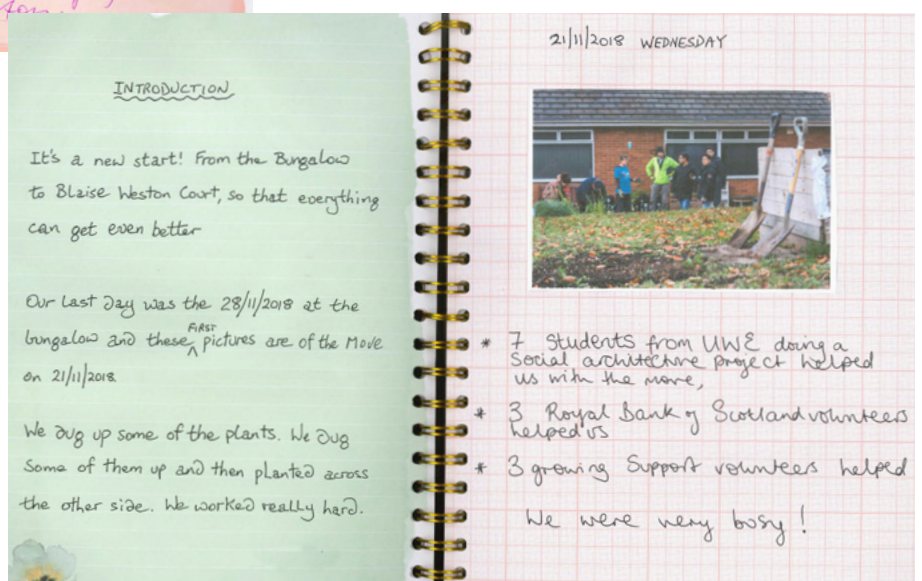 INTRODUCTION
It's a new start! From the Bungalow
to Blaise Weston Court, so that everything
can get even better
Our Last Day was the 28/11/2018 at the
bungalow and these FIRST pictures are of the Move
on 21/11/2018
We dug up some of the plants. We dug
Some of them up and then planted across
the other side. We worked really hard.
21/11/2018 WEDNESDAY
* 7 Students from UWE doing a
Social architecture project helped
us with the move,
* 3 Royal Bank of Scotland volunteers
helped us
* 3 growing Support volunteers helped
We were very busy!